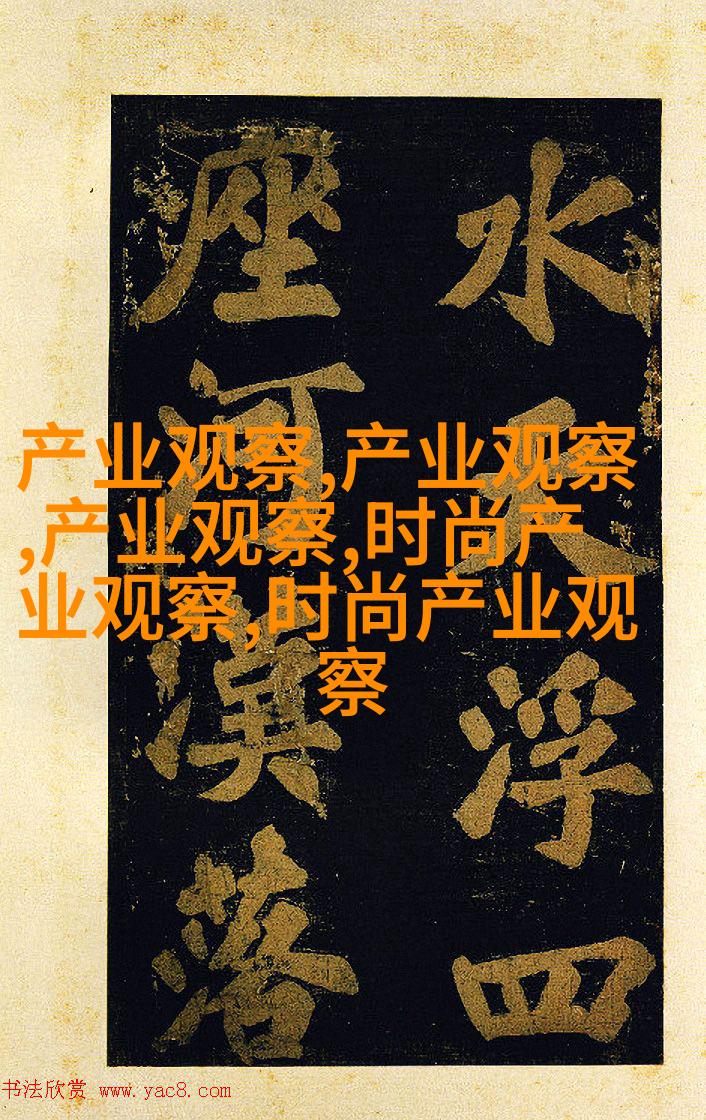 水天浮四
座河漢落
产业观察,产业观察
,产业观察,时尚产
业观察,时尚产业观
察
书法欣赏 www.yac8.com